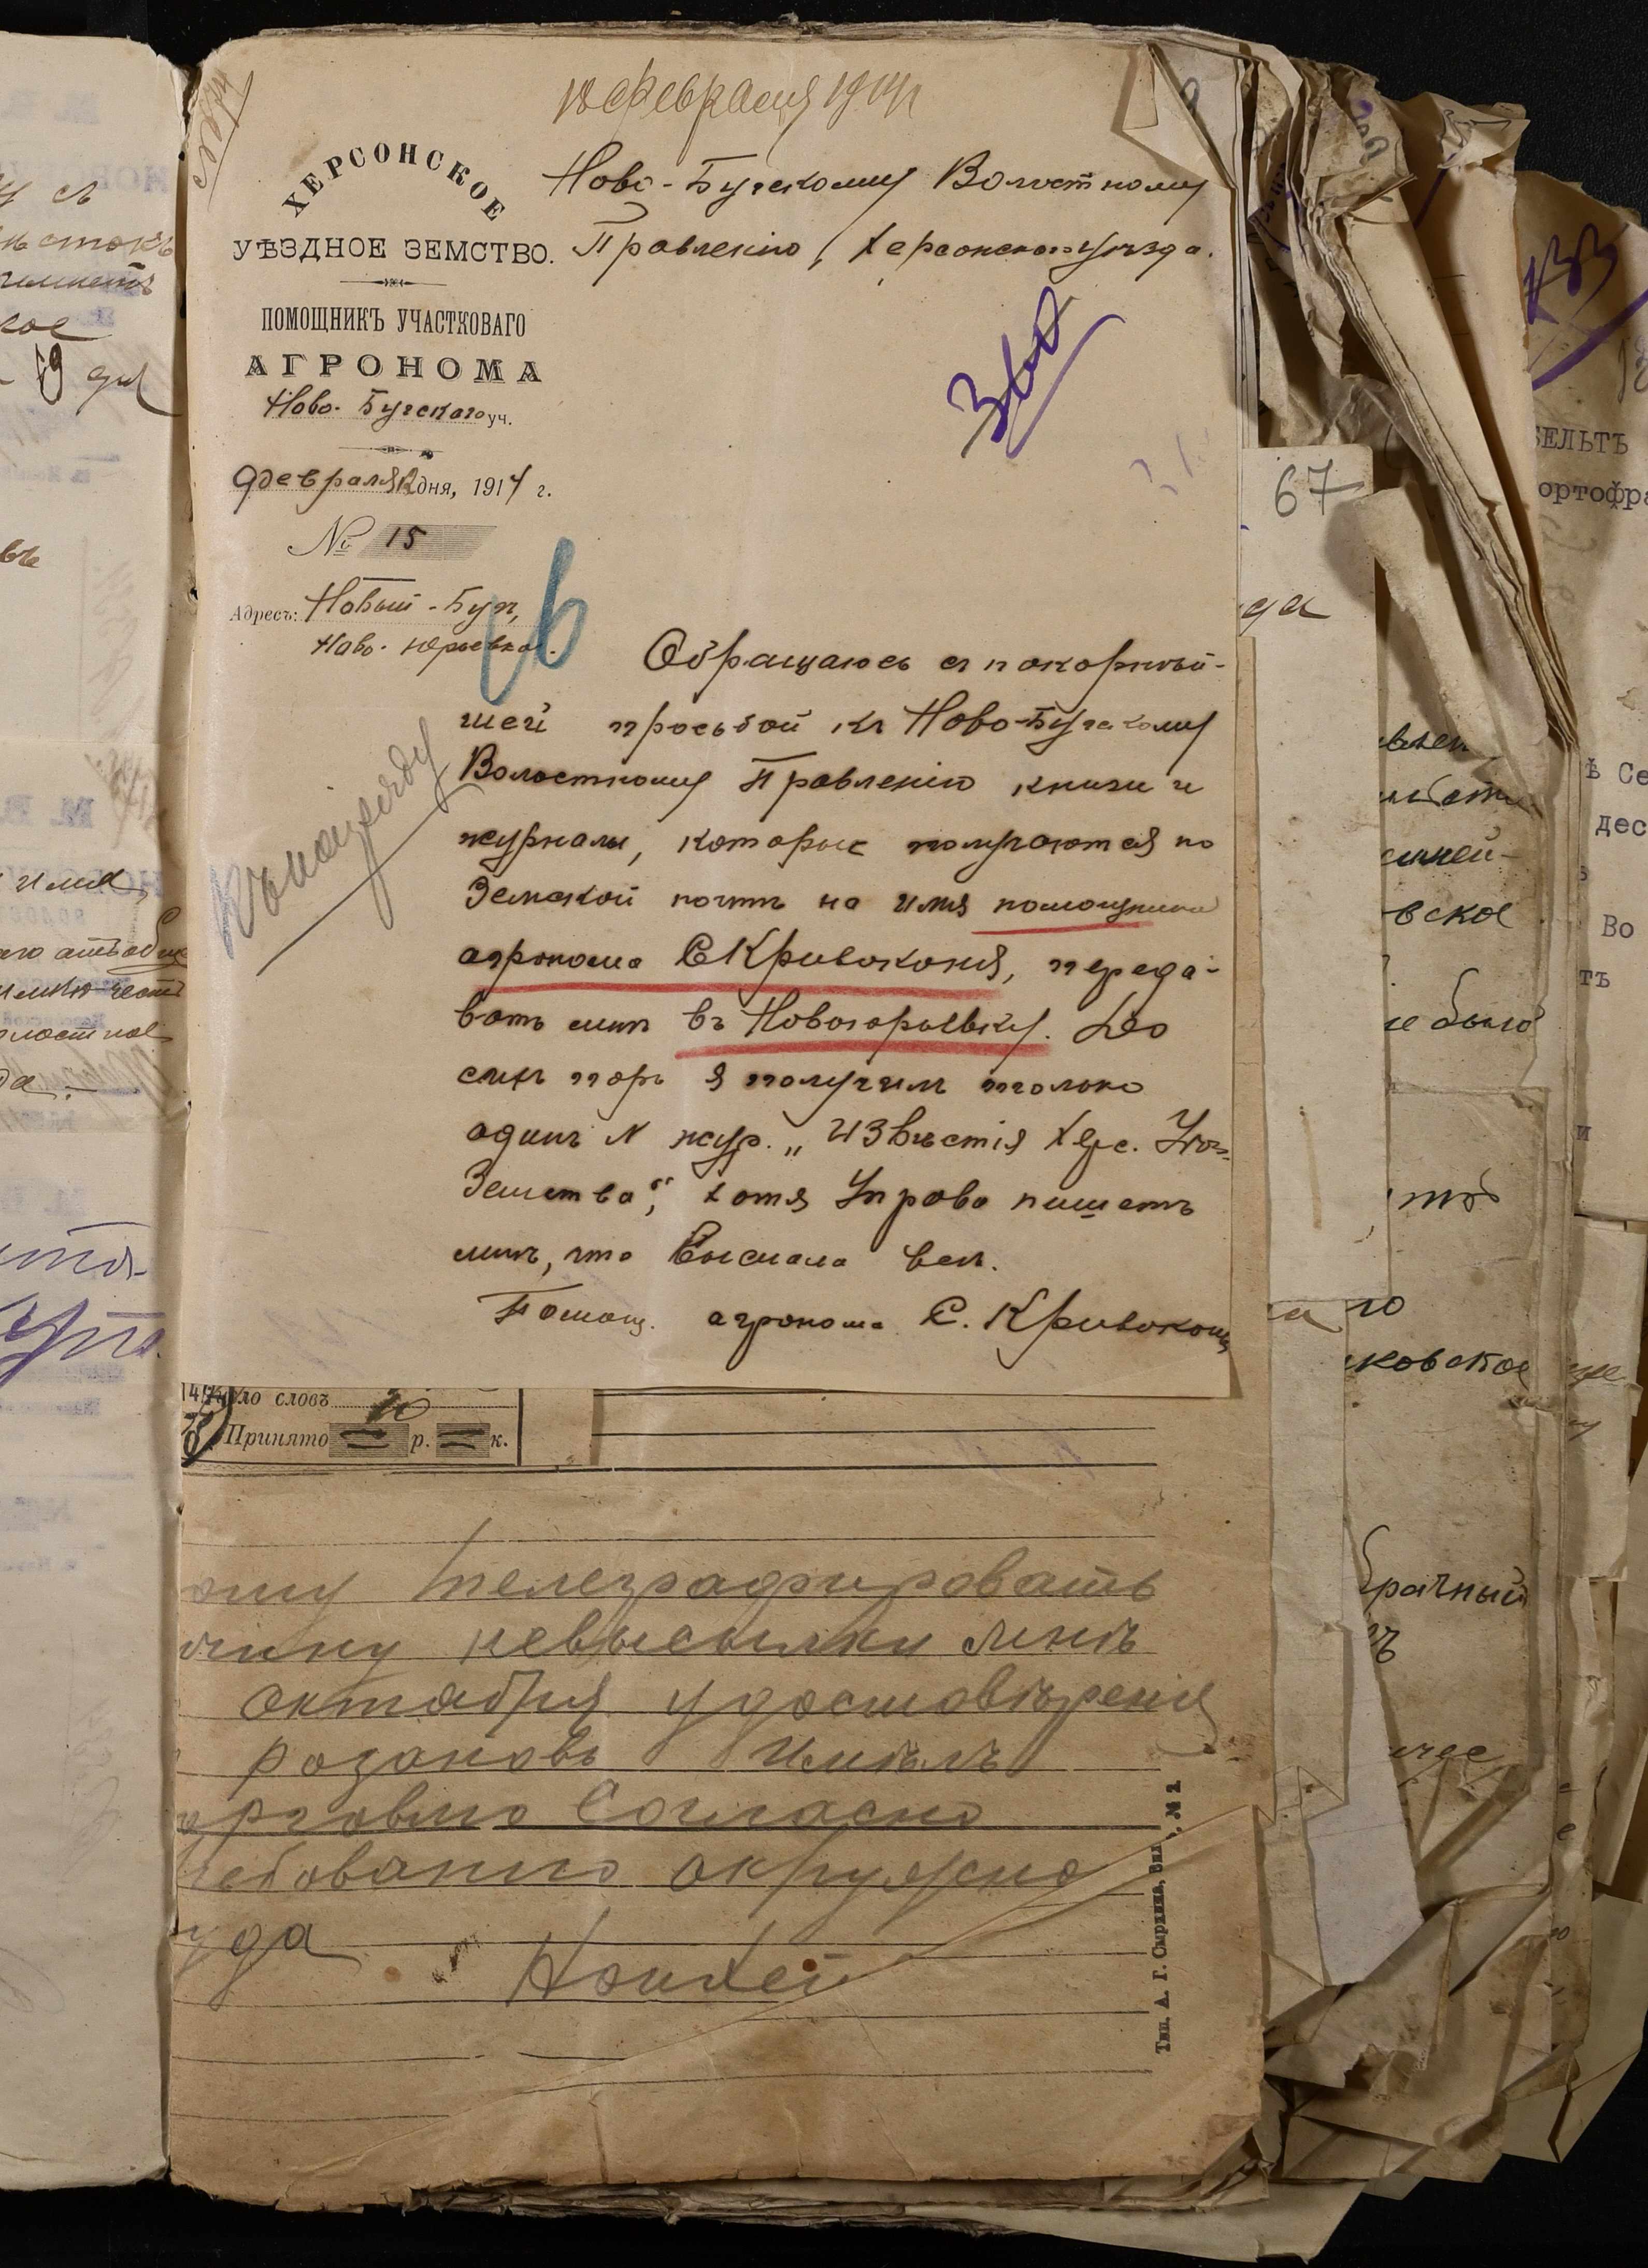 февраля 1914
ХЕРСОНСКОЕ
УѢЗДНОЕ ЗЕМСТВО.
ПОМОЩНИКЪ УЧАСТКОВАГО
АГРОНОМА
Ново-Бугскаго уч.
февраля 12 дня, 1914 г.
№ 15
Адресъ: Новый-Буг,
Ново-Юрьевка.
Ново-Бугскому Волостному
Правленію, Херсонскаго уѣзда.
67
Обращаюсь съ покорнѣй-
шей просьбой къ Ново-Бугскому
Волостному Правленію книги и
журналы, которые получаются по
Земской почтѣ на имя помощника
агронома С Кривоконя, переда-
вать мнѣ въ Новоюрьевку. До
сихъ поръ я получилъ только
одинъ N жур. „Извѣстія Херс. Уѣз.
Земства", хотя Управа пишетъ
мнѣ, что выслала всѣ.
Помощ. агронома С. Кривоконь
словъ
Принято р. к.
телеграфировать
невысылки мнѣ
октября удостовѣренія
розановъ имѣлъ
Согласно
окружно
Тип. А. Г. Сыркина, Вил. № 2
ЕЛЬТЪ
ортофра
Се
дес
Во
тъ
и
вское
е было
ковское
брачный
имя